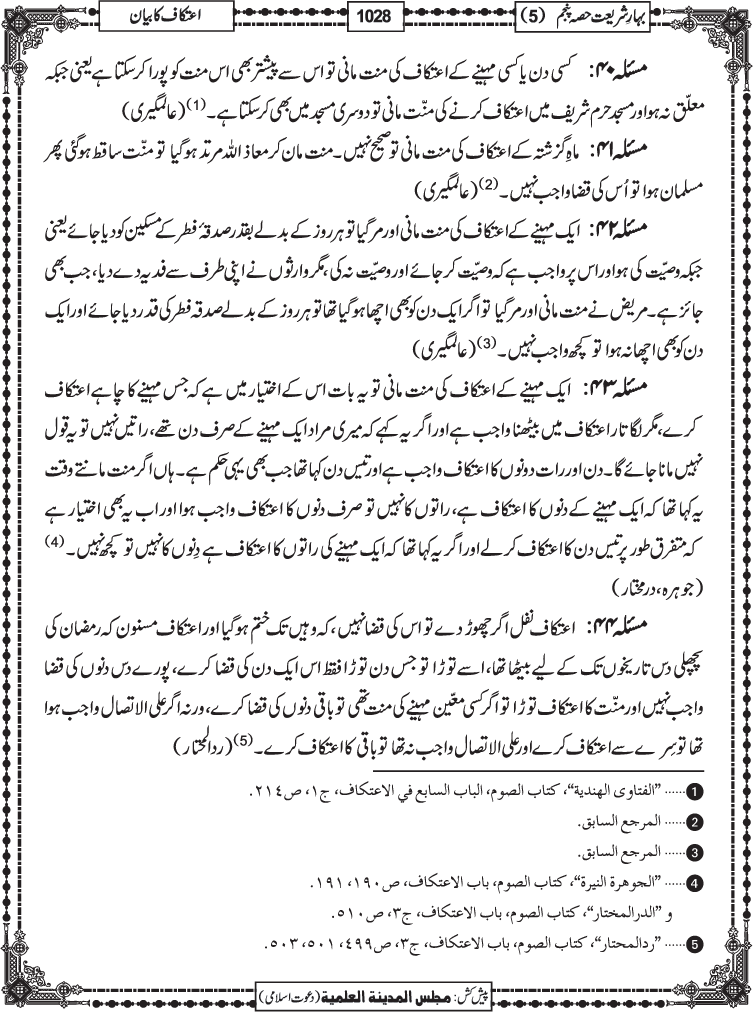 بہار شریعت حصہ پنجم (5)
1028
اعتکاف کا بیان
مسئلہ ۴۰: کسی دن یا کسی مہینے کے اعتکاف کی منت مانی تو اس سے پیشتر بھی اس منت کو پورا کرسکتا ہے یعنی جبکہ
معلّق نہ ہو اور مسجد حرم شریف میں اعتکاف کرنے کی منّت مانی تو دوسری مسجد میں بھی کرسکتا ہے۔ (1) (عالمگیری)
مسئلہ ۴۱: ماہِ گزشتہ کے اعتکاف کی منت مانی تو صحیح نہیں۔ منت مان کر معاذ اللہ مرتد ہوگیا تو منّت ساقط ہوگئی پھر
مسلمان ہوا تو اُس کی قضا واجب نہیں۔ (2) (عالمگیری)
مسئلہ ۴۲: ایک مہینے کے اعتکاف کی منت مانی اور مرگیا تو ہر روز کے بدلے بقدر صدقۂ فطر کے مسکین کو دیا جائے یعنی
جبکہ وصیّت کی ہو اور اس پر واجب ہے کہ وصیّت کر جائے اور وصیّت نہ کی، مگر وارثوں نے اپنی طرف سے فدیہ دے دیا، جب بھی
جائز ہے۔ مریض نے منت مانی اور مرگیا تو اگر ایک دن کو بھی اچھا ہوگیا تھا تو ہر روز کے بدلے صدقہ فطر کی قدر دیا جائے اور ایک
دن کو بھی اچھا نہ ہوا تو کچھ واجب نہیں۔ (3) (عالمگیری)
مسئلہ ۴۳: ایک مہینے کے اعتکاف کی منت مانی تو یہ بات اس کے اختیار میں ہے کہ جس مہینے کا چاہے اعتکاف
کرے، مگر لگاتار اعتکاف میں بیٹھنا واجب ہے اور اگر یہ کہے کہ میری مراد ایک مہینے کے صرف دن تھے، راتیں نہیں تو یہ قول
نہیں مانا جائے گا۔ دن اور رات دونوں کا اعتکاف واجب ہے اور تیس دن کہا تھا جب بھی یہی حکم ہے۔ ہاں اگر منت مانتے وقت
یہ کہا تھا کہ ایک مہینے کے دنوں کا اعتکاف ہے، راتوں کا نہیں تو صرف دنوں کا اعتکاف واجب ہوا اور اب یہ بھی اختیار ہے
کہ متفرق طور پر تیس دن کا اعتکاف کرلے اور اگر یہ کہا تھا کہ ایک مہینے کی راتوں کا اعتکاف ہے دِنوں کا نہیں تو کچھ نہیں۔ (4)
(جوہرہ، درمختار)
مسئلہ ۴۴: اعتکاف نفل اگر چھوڑ دے تو اس کی قضا نہیں، کہ وہیں تک ختم ہوگیا اور اعتکاف مسنون کہ رمضان کی
پچھلی دس تاریخوں تک کے لیے بیٹھا تھا، اسے توڑا تو جس دن توڑا فقط اس ایک دن کی قضا کرے، پورے دس دنوں کی قضا
واجب نہیں اور منّت کا اعتکاف توڑا تو اگر کسی معیّن مہینے کی منت تھی تو باقی دنوں کی قضا کرے، ورنہ اگر علی الاتصال واجب ہوا
تھا تو سِرے سے اعتکاف کرے اور علی الاتصال واجب نہ تھا تو باقی کا اعتکاف کرے۔ (5) (ردالمحتار)
1 ...... ”الفتاوی الهندیة“، کتاب الصوم، الباب السابع في الاعتکاف، ج١، ص٢١٤.
2 ...... المرجع السابق.
3 ...... المرجع السابق.
4 ...... ”الجوهرة النیرة“، کتاب الصوم، باب الاعتکاف، ص١٩٠، ١٩١.
و ”الدرالمختار“، کتاب الصوم، باب الاعتکاف، ج٣، ص٥١٠.
5 ...... ”ردالمحتار“، کتاب الصوم، باب الاعتکاف، ج٣، ص٤٩٩، ٥٠١، ٥٠٣.
پیش کش: مجلس المدینة العلمیة (دعوت اسلامی)